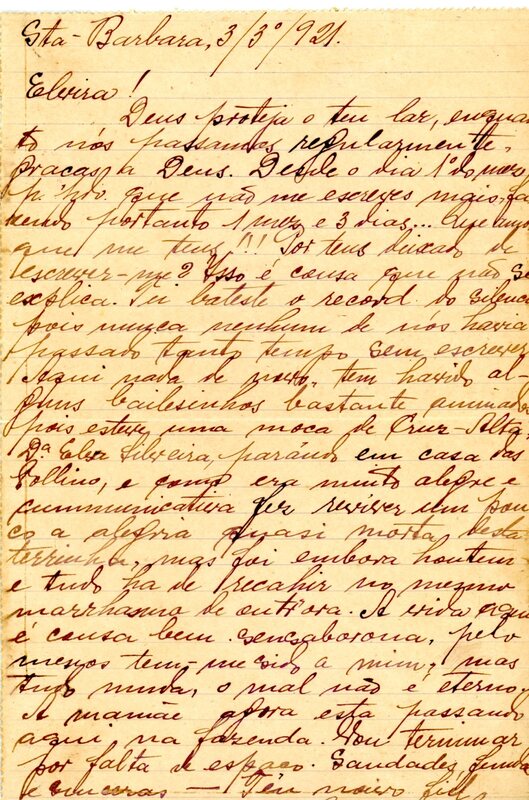 Sta- Barbara, 3/3º/921.
Elvira!
Deus proteja o teu lar, enquan
to nós passamos regularmente,
graças a Deus. Desde o dia 1º do mez
p. que não me escreves mais, fa
zendo portanto 1 mez e 3 dias... Que
que me tens!!! Por teus deixado de
escrever-me? Isso é cousa que não se
explica. Tu bateste o record do silencio
pois nunca nenhum de nós havia
passado tanto tempo sem escrever
Aqui nada de novo, tem havido al-
guns bailesinhos bastante animados
pois esteve uma moça de Cruz-Alta.
D.ª Elva Silveira, parando em casa das
Pollino, e como era muito alegre e
cummunicativa fez reviver um pou
co a alegria quasi morta desta
terrinha, mas foi embora hontem
e tudo ha de recahir no mesmo
marrhasmo de outrora. A vida aqui
é cousa bem sensaborona, pelo
menos tem-me sido a mim, mas
tudo muda, o mal não é eterno,
A mamãe agora está passando
aqui na fazenda. Vou terminar
por falta de espaço. Saudades,
e sinceras — Teu noivo